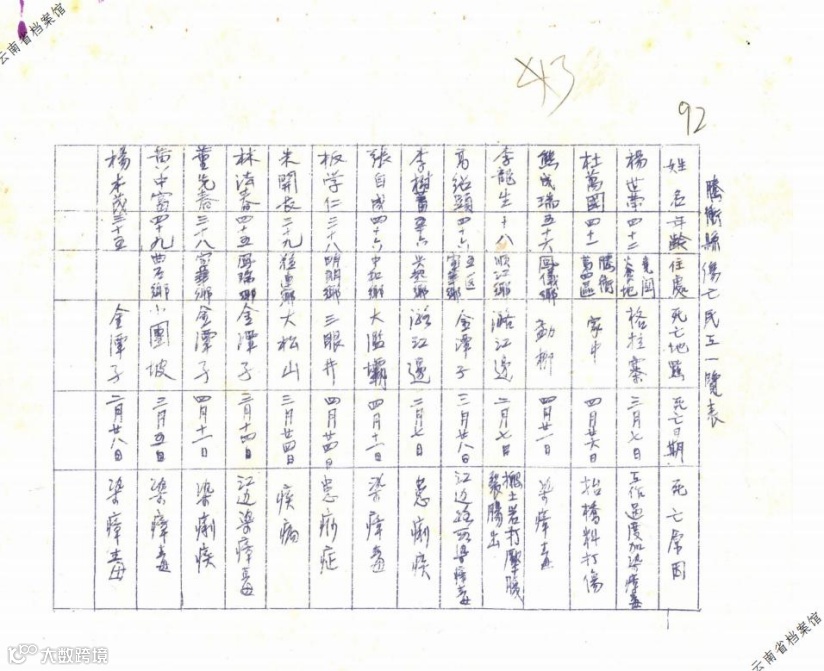 云南省档案馆
443
92
騰衝縣傷亡民工一覽表
姓名 年齡 住處 死亡地點 死亡日期 死亡原因
楊世榮 四十二 格拉寨 三月七日 工作過度加染瘴毒
杜萬國 四十二 騰衝 第四區 家中 四月廿六日 抬橋料打傷
熊成瑞 五十六 鳳儀鄉 孟柳 四月廿一日 染瘴毒
李龍生 十八 順江鄉 潞江邊 二月七日 搬土岩打擊腸出
高紹顕 四十六 五區 金潭子 三月廿八日 江边染瘴毒
李樹 潞江邊 二月七日 患痢疾
張自成 四十六 中和鄉 大濫壩 四月十二日 染瘴毒
板学仁 三十八 明朗鄉 三眼井 四月廿四日 患痢症
朱開 二十九 大松山 三月廿四日 疾病
林 四十五 鳳瑞鄉 金潭子 三月十四日 江边染瘴毒
董先 三十八 金潭子 四月十一日 染痢疾
黄中富 四十九 鄉 小團坡 三月五日 染瘴毒
楊本茂 三十五 金潭子 二月廿八日 染瘴毒
云南省档案馆
大数跨境